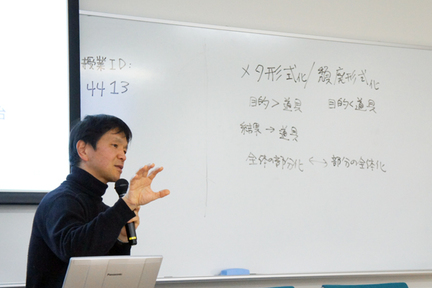 授業ID:
4413
メタ形式化/頽廃形式化
目的>道具 目的<道具
結果→道具
全体の部分化 ←→ 部分の全体化
Panasonic